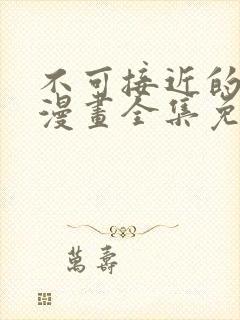 不可接近的
漫畫全集免
萬壽